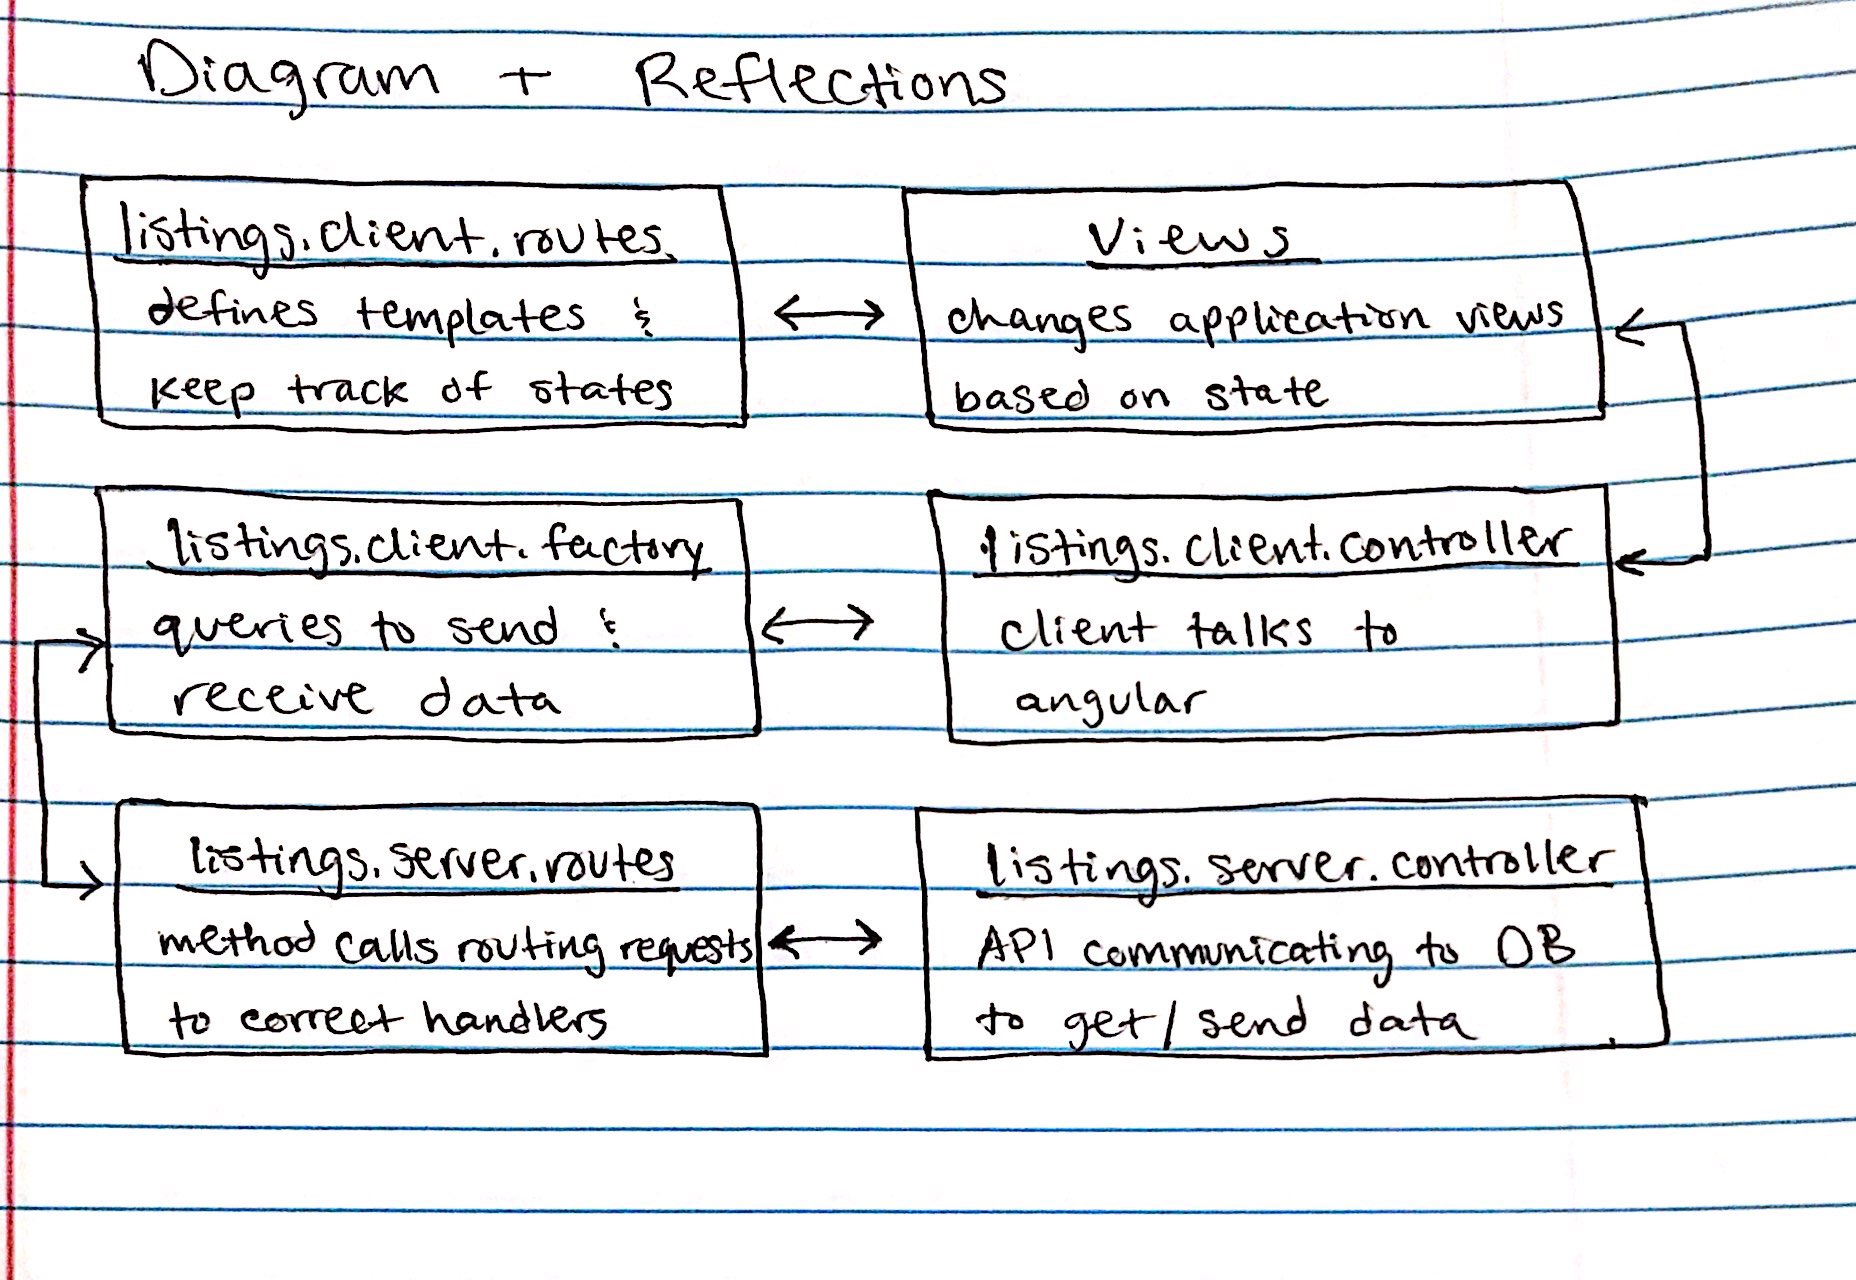 Diagram + Reflections
listings.client.routes.
defines templates &
keep track of states
Views
changes application views
based on state
listings.client.factory
queries to send &
receive data
listings.client.controller
client talks to
angular
listings.server.routes
method calls routing requests
to correct handlers
listings.server.controller
API communicating to DB
to get/send data